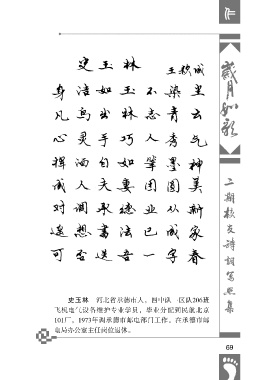 史玉林
王歉成
身洁如玉不染里
凡鸟出林志青云
心灵手巧人秀气
挥洒自如笔墨神
成人夫妻团圆美
对调承德业从新
遥想书法已成家
可否送吾一字春
史玉林 河北省承德市人。四中队一区队206班
飞机电气设备维护专业学员，毕业分配到民航北京
101厂。1973年调承德市邮电部门工作。在承德市邮
电局办公室主任岗位退休。
作
岁月如歌
二期校友诗词写照集
69